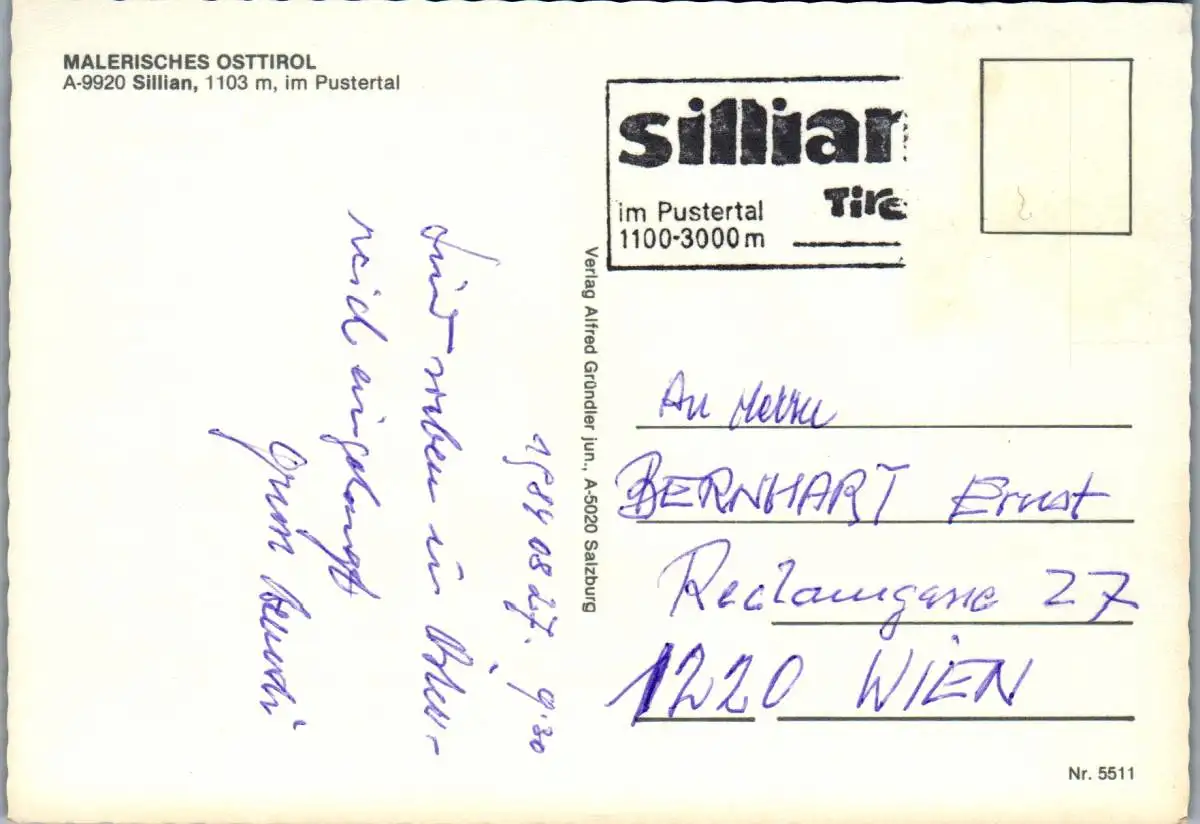 MALERISCHES OSTTIROL
A-9920 Sillian, 1103 m, im Pustertal
sillian
Tiro
im Pustertal
1100-3000 m
Verlag Alfred Gründler jun., A-5020 Salzburg
1984 08 27. 9:30
sind soben in
eingelangt
An Herrn
BERNHART Ernst
Reclamgasse 27
1220 WIEN
Nr. 5511